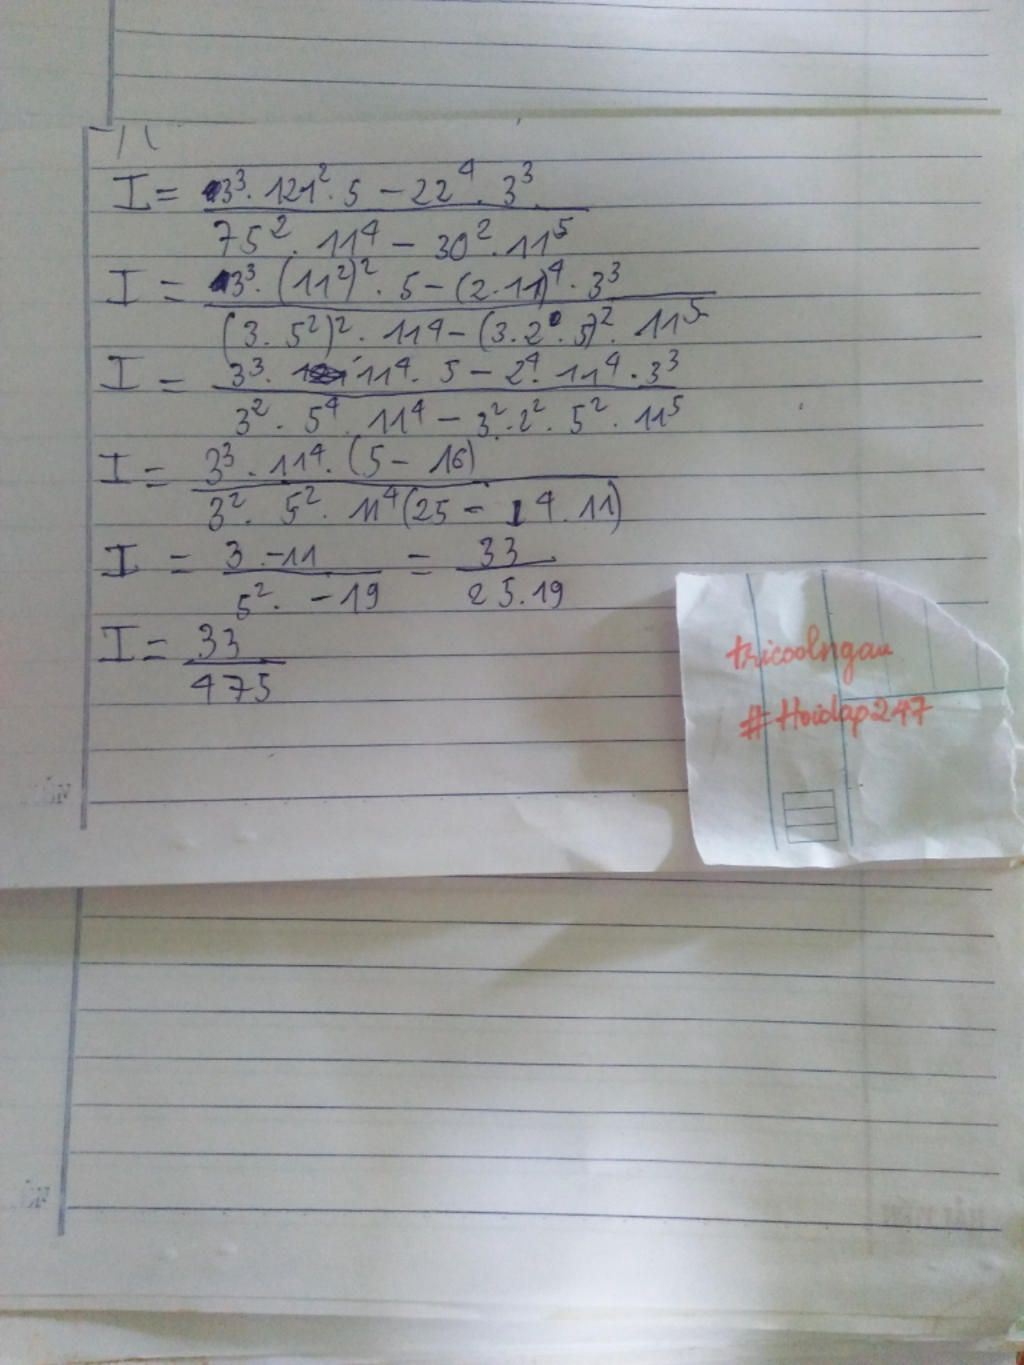 I = 3³ . 121² . 5 - 22⁴ . 3³
75² . 11⁴ - 30² . 11⁵
I = 3³ . (11²)² . 5 - (2.11)⁴ . 3³
(3 . 5²)² . 11⁴ - (3.2 . 5)² . 11⁵
I = 3³ . 11⁴ . 5 - 2⁴ . 11⁴ . 3³
3² . 5⁴ . 11⁴ - 3² . 2² . 5² . 11⁵
I = 3³ . 11⁴ . (5 - 16)
3² . 5² . 11⁴ (25 - 4 . 11)
I = 3 . -11 = 33
5² . -19 25.19
I = 33
475
tricoolngau
#Hoidap247